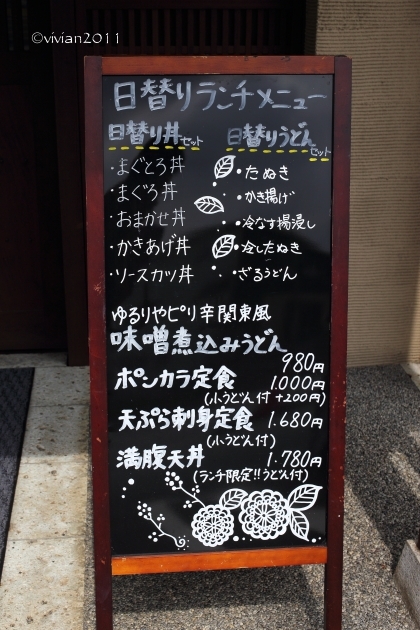 ©vivian2011
日替りランチメニュー
日替り丼セット 日替りうどんセット
・まぐとろ丼 ・たぬき
・まぐろ丼 ・かき揚げ
・おまかせ丼 ・冷なす揚浸し
・かきあげ丼 ・冷したぬき
・ソースカツ丼 ・ざるうどん
ゆるりやピリ辛関東風
味噌煮込みうどん
980円
ポンカラ定食 1.000円
(小うどん付 +200円)
天ぷら刺身定食 1.680円
(小うどん付)
満腹天丼 1.780円
(ランチ限定!!うどん付)